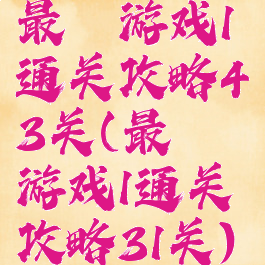 最 游戏1
通关攻略4
3关(最
游戏1通关
攻略31关)